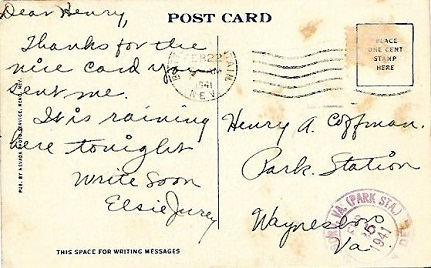 Dear Henry,
Thanks for the
nice card you
sent me.
It is raining
here tonight
Write Soon
Elsie Jurey
THIS SPACE FOR WRITING MESSAGES
POST CARD
FEB 22
1941
NEV.
PLACE
ONE CENT
STAMP
HERE
Henry A. Coffman.
Park Station
Waynesboro
Va.
VA. (PARK STA.)
1941